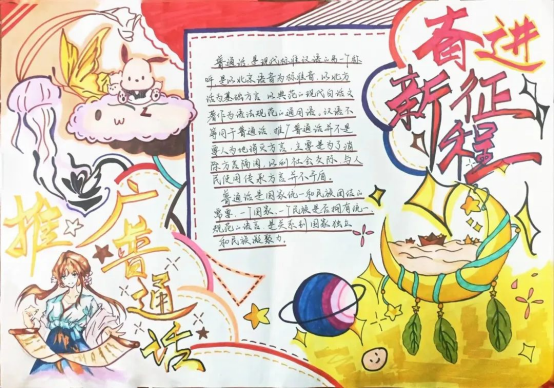 奋进
新征程
推广普通话
普通话是现代标准汉语的另一个称
呼是以北京语音为标准音,以北方
话为基础方言,以典范的现代白话文
著作为语法规范的通用语,汉语不
等同于普通话,推广普通话并不是
要人为地消灭方言,主要是为了消
除方言隔阂,以利社会交际,与人
民使用传承方言并不矛盾。
普通话是国家统一和民族团结的
需要,一个国家、一个民族是否拥有统一
规范的语言,是关系到国家独立
和民族凝聚力。